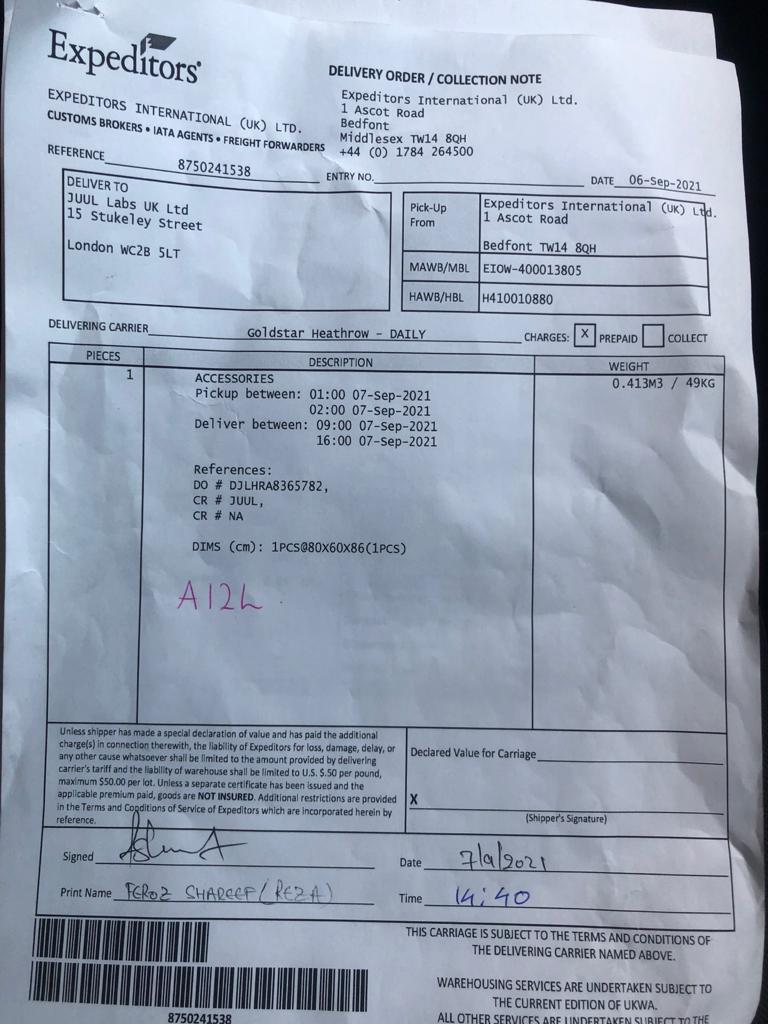 Expeditors®
EXPEDITORS INTERNATIONAL (UK) LTD.
CUSTOMS BROKERS • IATA AGENTS • FREIGHT FORWARDERS
DELIVERY ORDER / COLLECTION NOTE
Expeditors International (UK) Ltd.
1 Ascot Road
Bedfont
Middlesex TW14 8QH
+44 (0) 1784 264500
REFERENCE 8750241538 ENTRY NO. DATE 06-Sep-2021
DELIVER TO
JUUL Labs UK Ltd
15 Stukeley Street
London WC2B 5LT
Pick-Up From
Expeditors International (UK) Ltd.
1 Ascot Road
Bedfont TW14 8QH
MAWB/MBL EIOW-400013805
HAWB/HBL H410010880
DELIVERING CARRIER Goldstar Heathrow - DAILY CHARGES: X PREPAID COLLECT
PIECES DESCRIPTION WEIGHT
1 ACCESSORIES 0.413M3 / 49KG
Pickup between: 01:00 07-Sep-2021
02:00 07-Sep-2021
Deliver between: 09:00 07-Sep-2021
16:00 07-Sep-2021
References:
DO # DJLHRA8365782,
CR # JUUL,
CR # NA
DIMS (cm): 1PCS@80X60X86(1PCS)
A12L
Unless shipper has made a special declaration of value and has paid the additional
charge(s) in connection therewith, the liability of Expeditors for loss, damage, delay, or
any other cause whatsoever shall be limited to the amount provided by delivering
carrier's tariff and the liability of warehouse shall be limited to U.S. $.50 per pound,
maximum $50.00 per lot. Unless a separate certificate has been issued and the
applicable premium paid, goods are NOT INSURED. Additional restrictions are provided
in the Terms and Conditions of Service of Expeditors which are incorporated herein by
reference.
Declared Value for Carriage
X
(Shipper's Signature)
Signed
Date 7/9/2021
Print Name FEROZ SHAREEF (REZA)
Time 14:40
THIS CARRIAGE IS SUBJECT TO THE TERMS AND CONDITIONS OF
THE DELIVERING CARRIER NAMED ABOVE.
WAREHOUSING SERVICES ARE UNDERTAKEN SUBJECT TO
THE CURRENT EDITION OF UKWA.
ALL OTHER SERVICES ARE UNDERTAKEN SUBJECT TO THE
8750241538